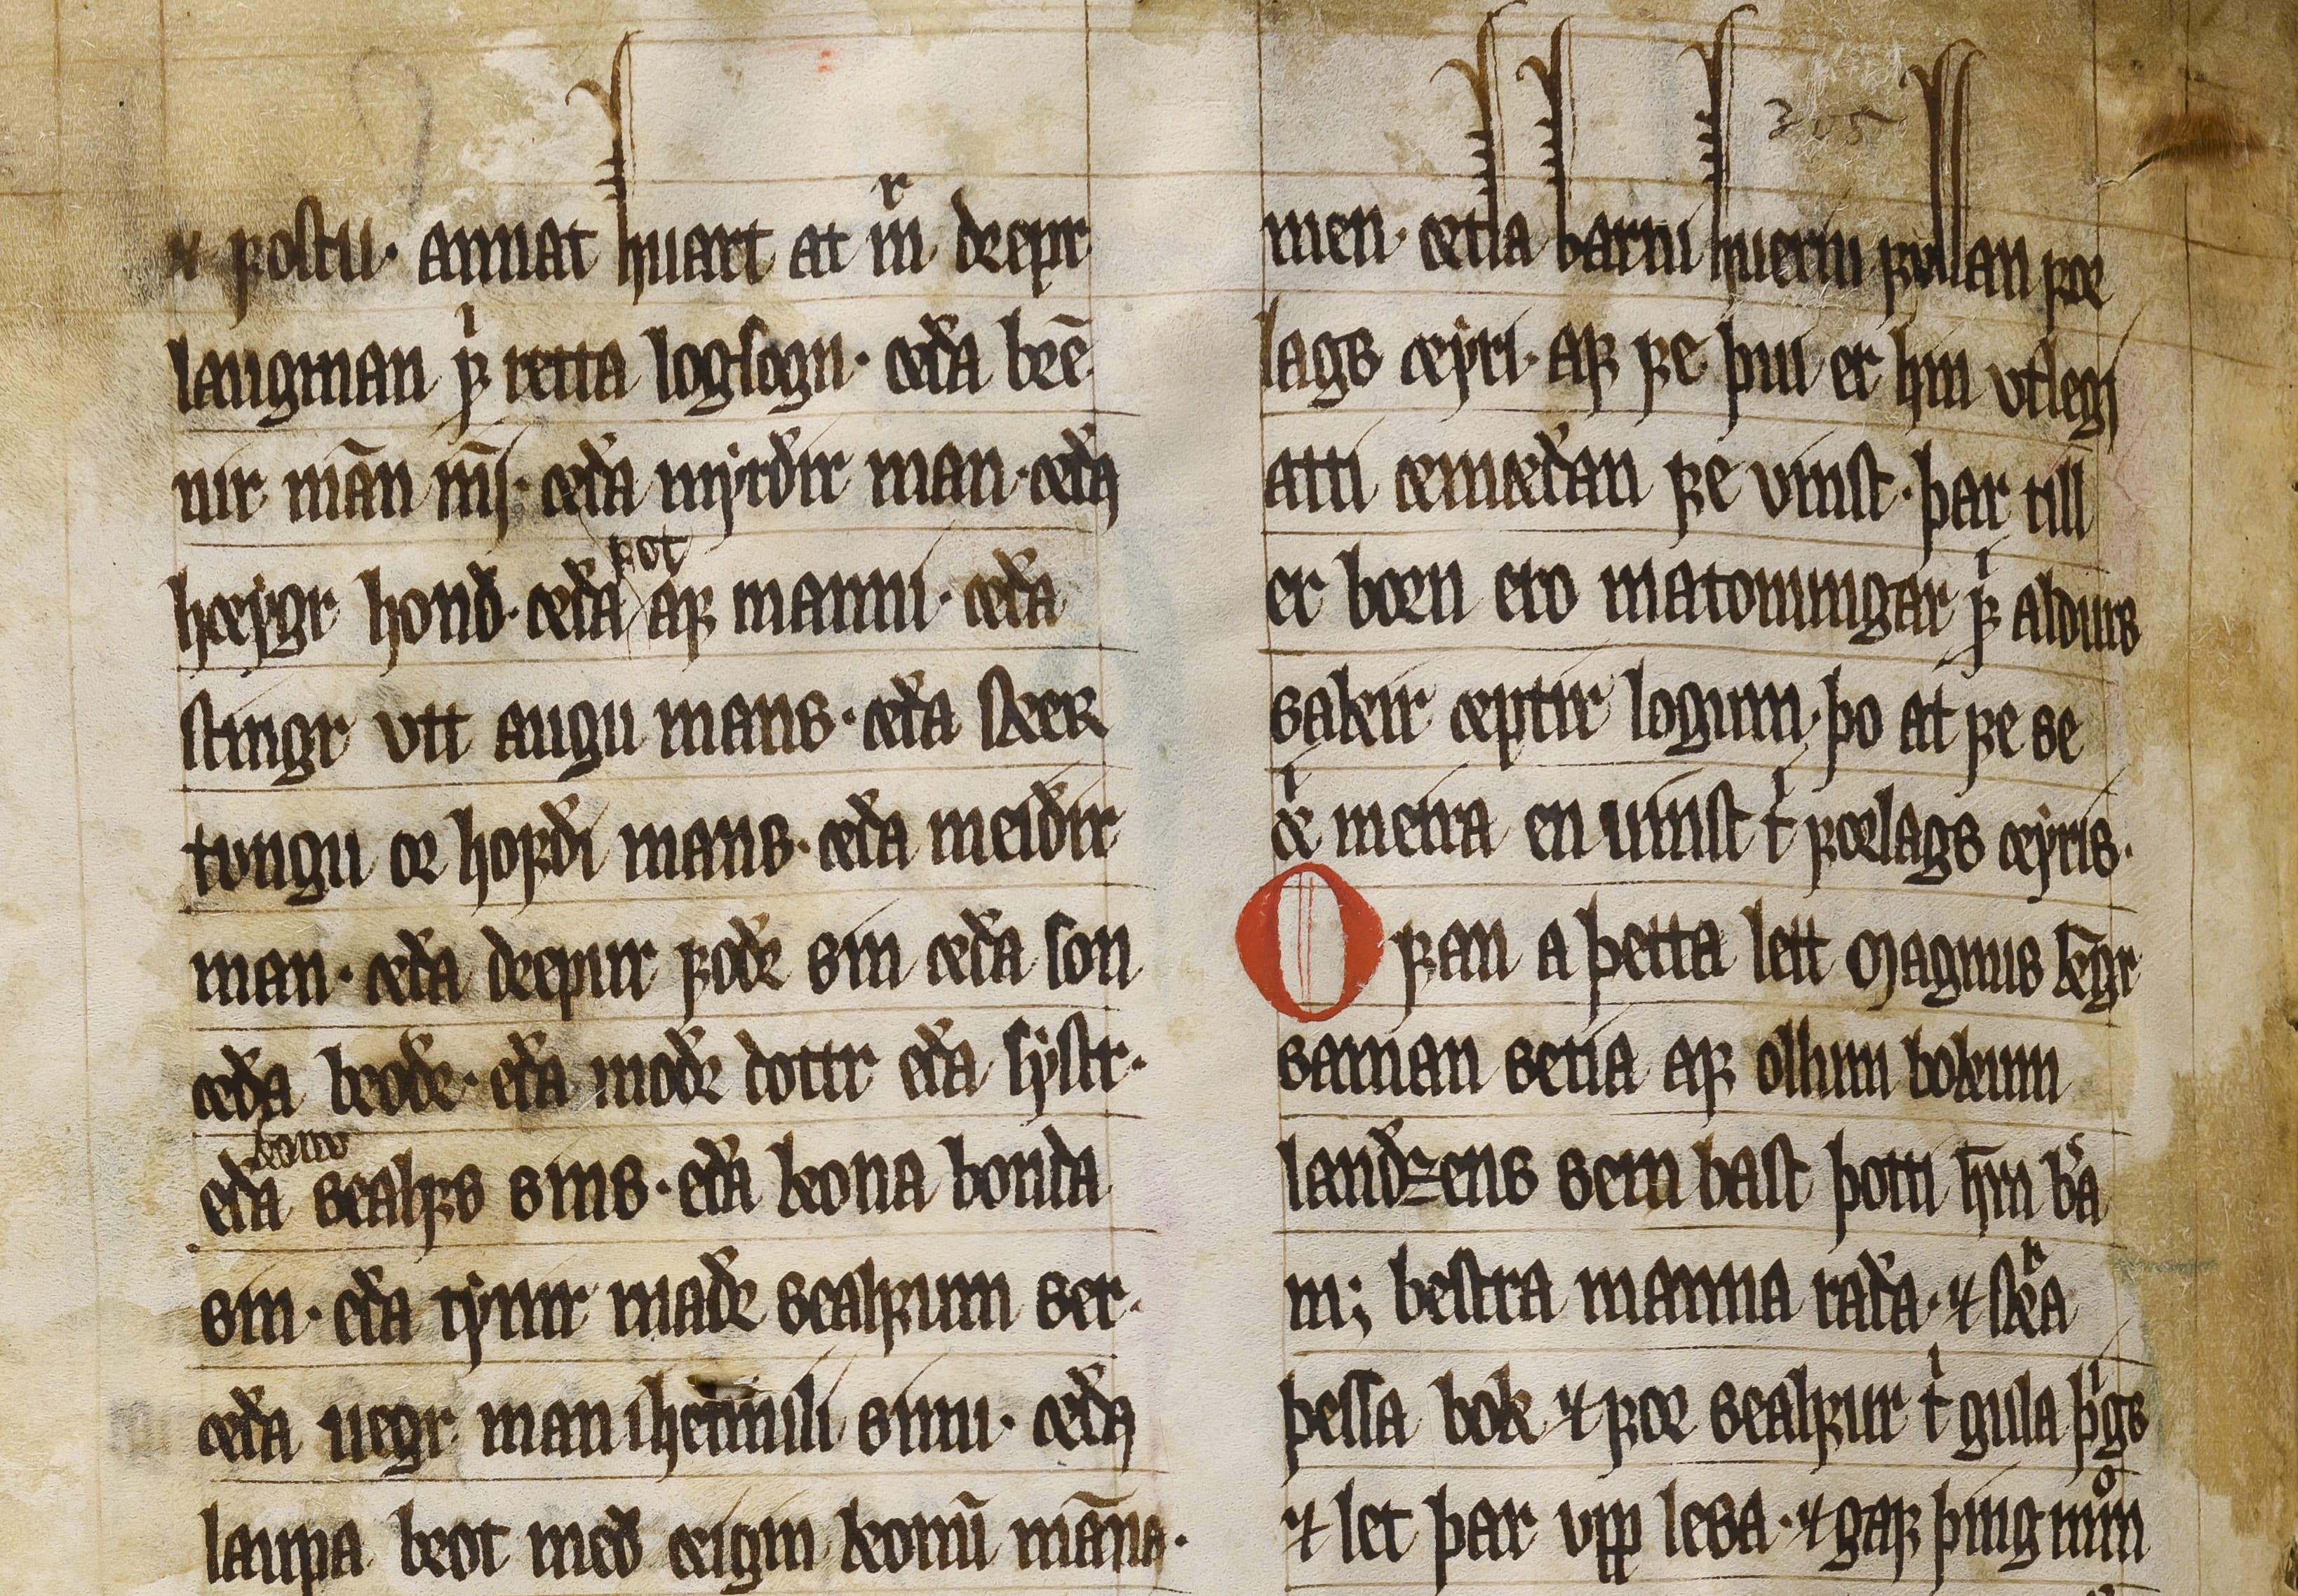 ⁊ ꝼostu. annat huart at mͬ drepr
laugman ꝼͥ retta logsogn. æða bre̅
nir ma̅n in̅j. æða myrðir man. æða
ꝼot
hœygr honð. æða aꝼ manni. æða
stingr vtt augu mans. æða skerr
tungu or hoꝼði mans. æða meiðir
man. æða drepur ꝼoðr sin æða son
æða broðr. eða moðr dottr eða systr.
kono
eða sealꝼs sins. eða kona bonda
sin. eða tynir maðr sealꝼum ser.
æða uegr man i heimili sinu. æða
laupa brot með æigin konu̅ ma̅na.
305
men. ætla barni huerni ꝼullan ꝼor
lags œyri. aꝼ ꝼe þui er hin vtlegi
atti æmæðan ꝼe vinst. þar till
er born ero matomingar ꝼͥ aldurs
saker æptir logum. þo at ꝼe se
æͥ meira en uinst tͥ ꝼorlags œyris.
Oꝼan a þetta lett Magnus ko̅gr
saman setia aꝼ ollum bokum
landzens sem bast þotti ho̅m bͤa
m; bestra manna raða. ⁊ skͬa
þessa bok ⁊ ꝼor sealꝼur tͥ gula þͥgs
⁊ let þar vpp lesa. ⁊ gaꝼ þingmͦm